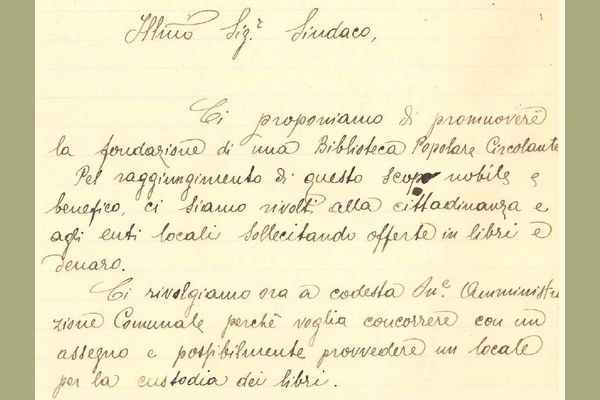 Illmo Sig.r Sindaco,
Ci proponiamo di promuovere
la fondazione di una Biblioteca Popolare Circolante
Pel raggiungimento di questo scopo nobile e
benefico, ci siamo rivolti alla cittadinanza e
agli enti locali sollecitando offerte in libri e
denaro.
Ci rivolgiamo ora a codesta On.e Amministra
zione Comunale perchè voglia concorrere con un
assegno e possibilmente provvedere un locale
per la custodia dei libri.